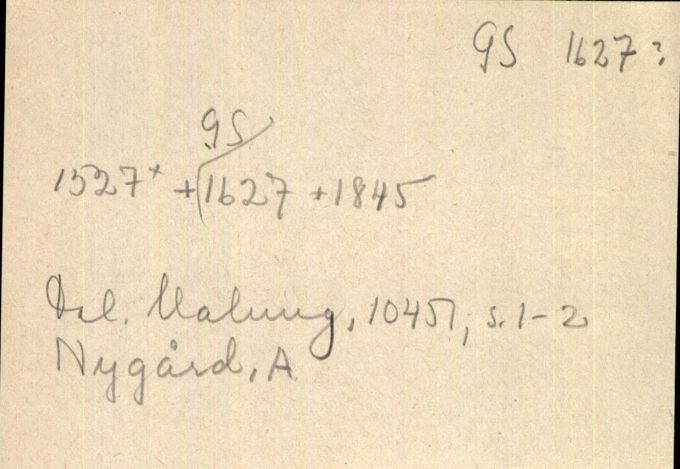 GS 1627:
GS
1527+ + 1627 + 1845
Dal. Malung, 10451, s. 1-2
Nygård, A